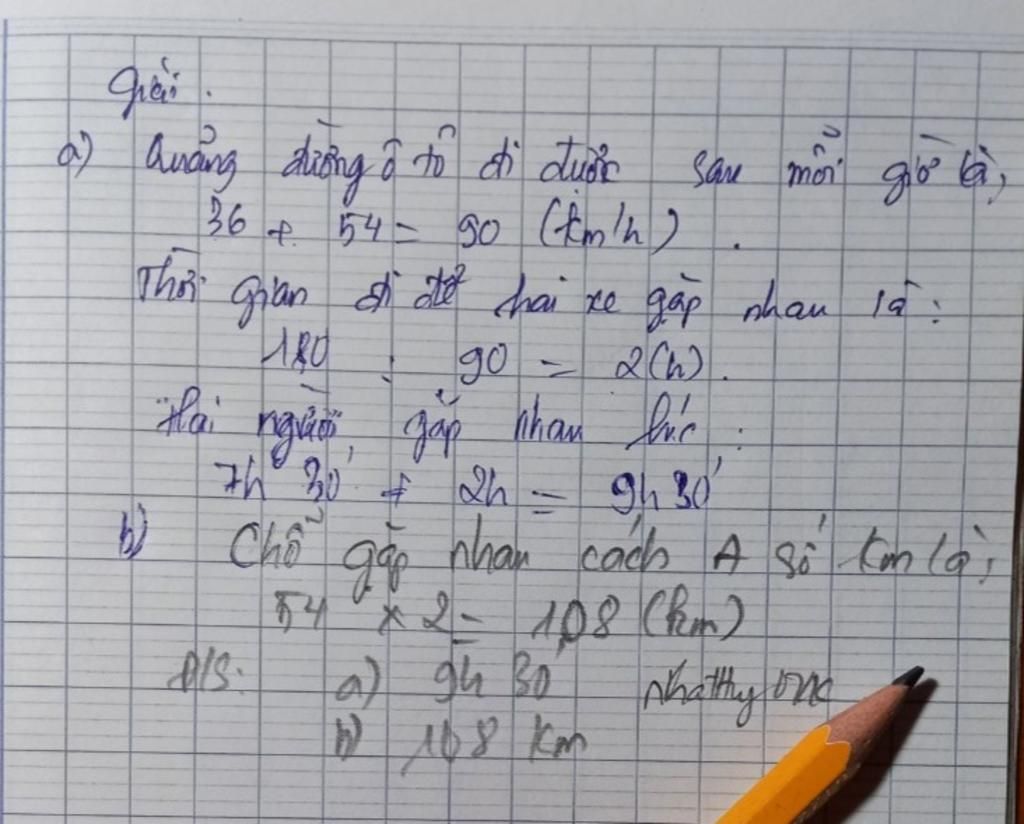 Giải.
a) Quãng đường ô tô đi được sau mỗi giờ là;
36 + 54 = 90 (km/h).
Thời gian đi để hai xe gặp nhau là:
180 : 90 = 2(h).
Hai người gặp nhau lúc:
7h 30' + 2h = 9h 30'
b) Chỗ gặp nhau cách A số km là;
54 x 2 = 108 (km)
Đ/S: a) 9h 30'
b) 108 km